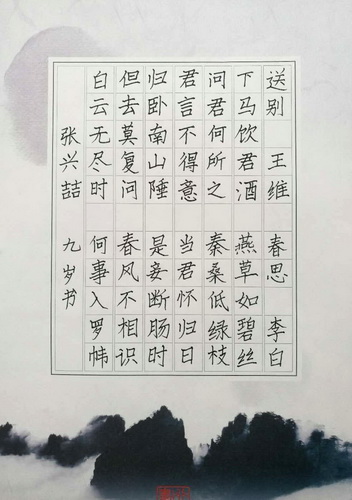 送别 王维 春思 李白
下马饮君酒 燕草如碧丝
问君何所之 秦桑低绿枝
君言不得意 当君怀归日
归卧南山陲 是妾断肠时
但去莫复问 春风不相识
白云无尽时 何事入罗帏
张兴喆 九岁书